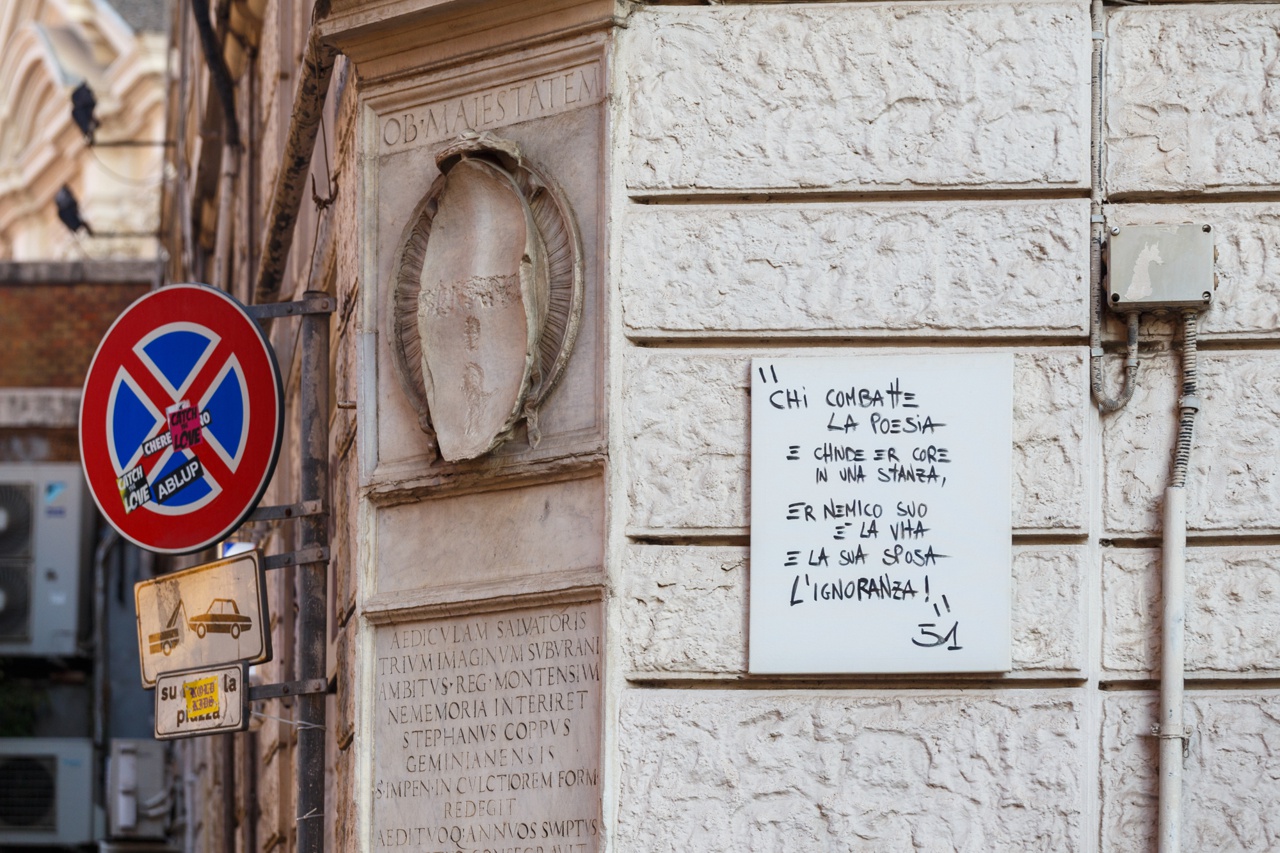 OB·MAIESTATEM
AEDICVLAM SALVATORIS
TRIVM IMAGINVM SVBVRANI
AMBITVS·REG·MONTENSIVM
NEMEMORIA INTERIRET
STEPHANVS COPPVS
GEMINIANENSIS
S·IMPEN·IN CVLCTIOREM FORM
REDEGIT
AEDITVOQ·ANNVOS SVMPTVS
"CHI COMBATTE
LA POESIA
E CHIUDE ER CORE
IN UNA STANZA,
ER NEMICO SUO
E' LA VITA
E LA SUA SPOSA
L'IGNORANZA!"
51
CATCH
LOVE
CHERE
CATCH
LOVE
ABLUP
su la
KOLD
KIDS
piazza